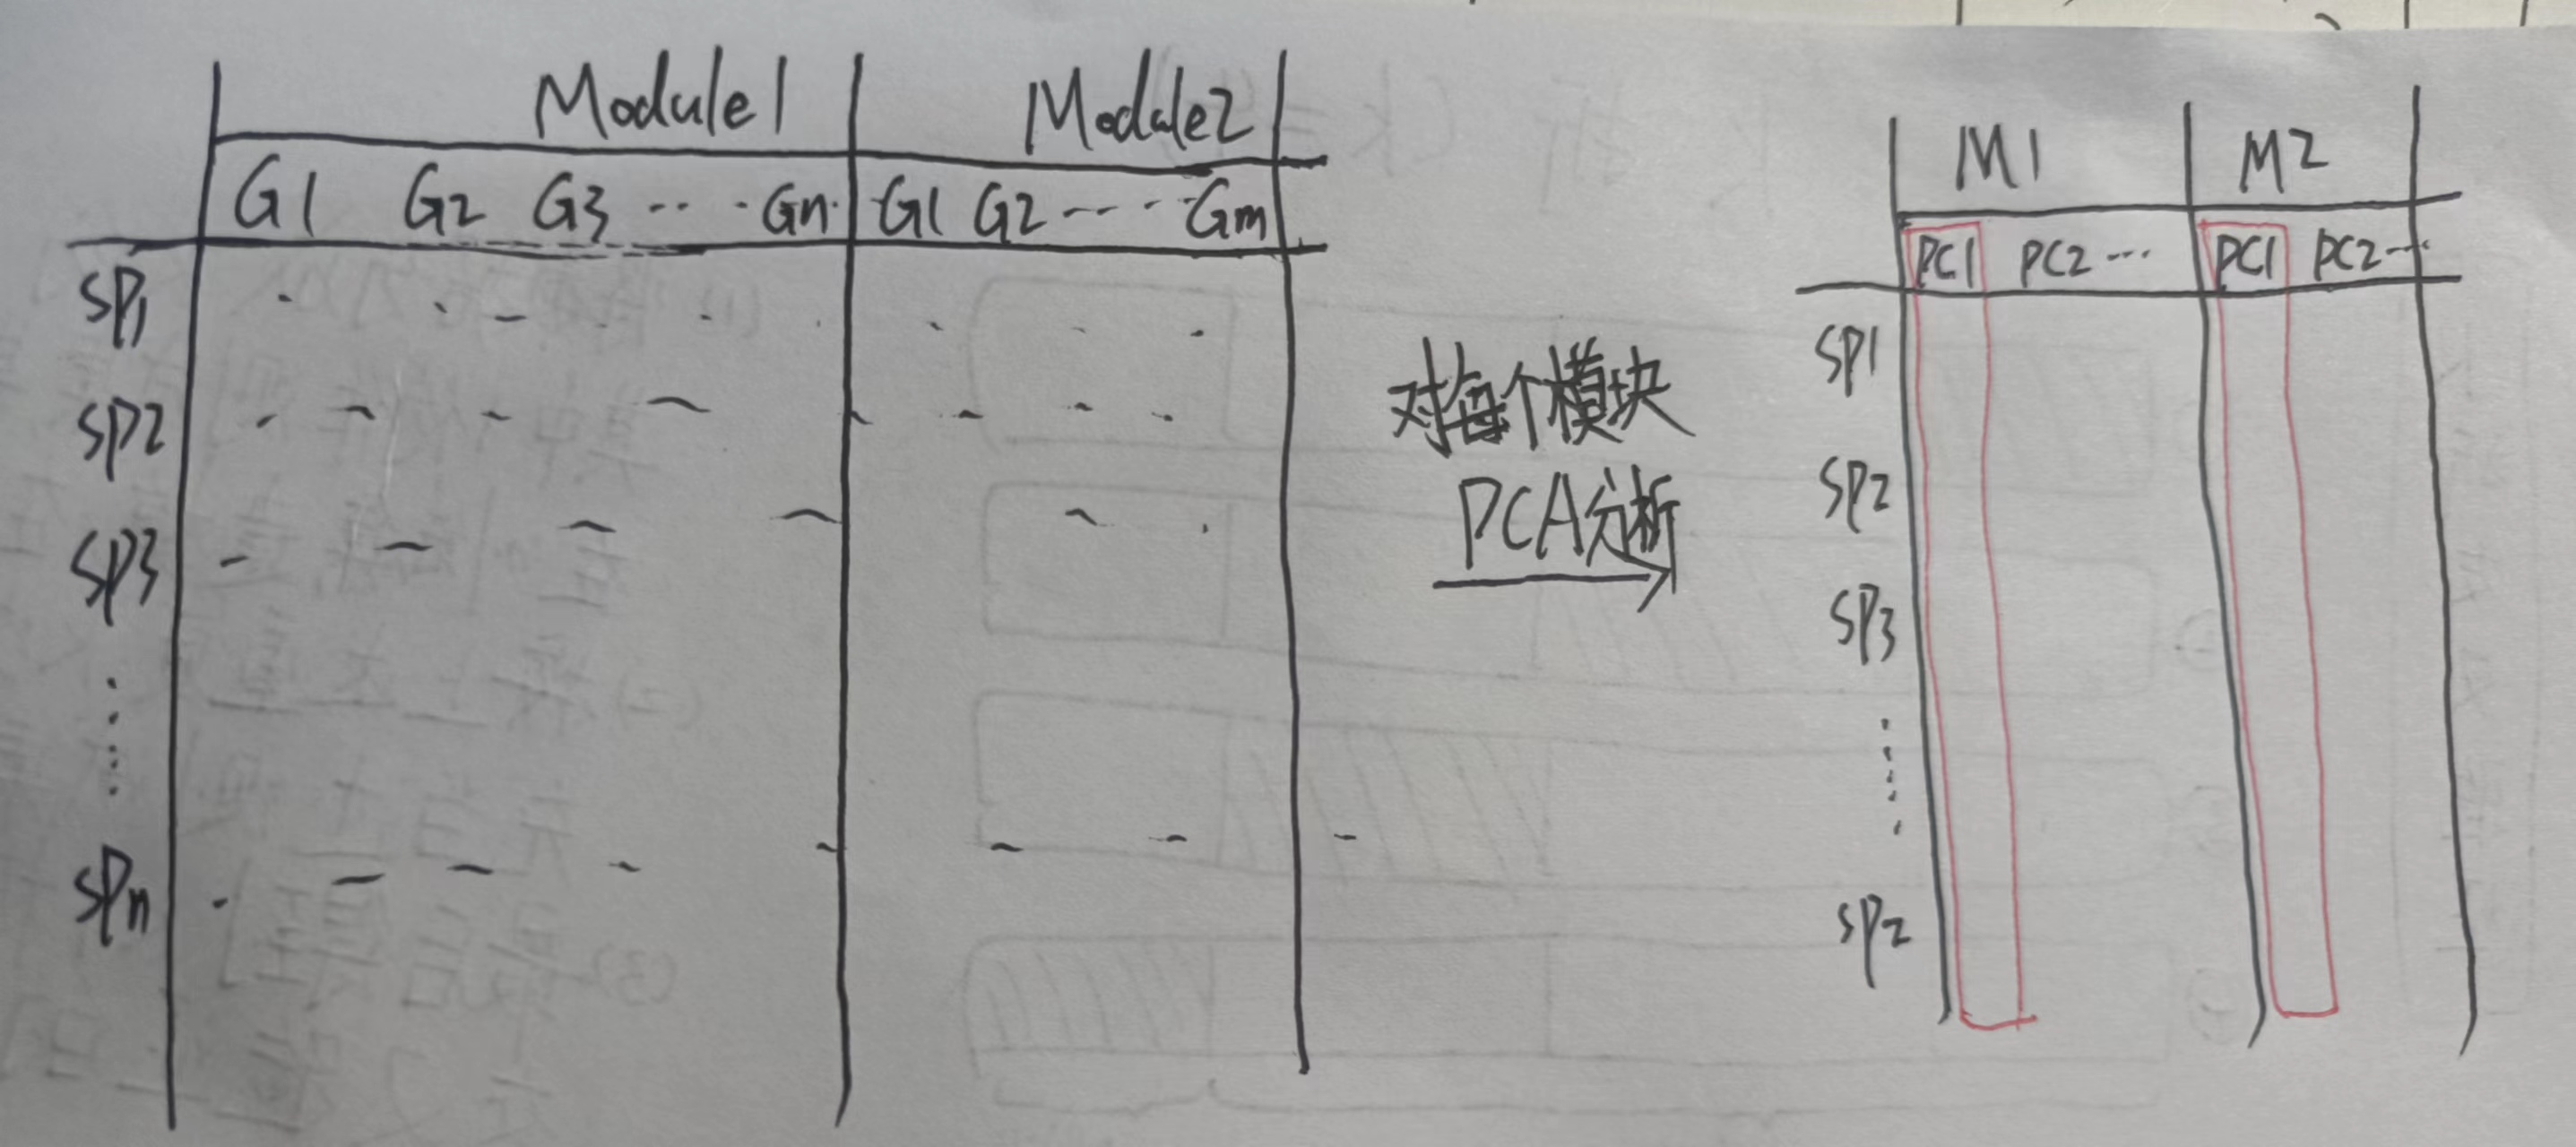 Module1 Module2
G1 G2 G3 ... Gn G1 G2 ... Gm
SP1
SP2
SP3
SPn
对每个模块
PCA分析
M1 M2
PC1 PC2 ... PC1 PC2 ...
SP1
SP2
SP3
SP2